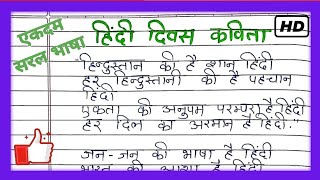 एकदम
सरल भाषा
हिंदी दिवस कविता
HD
"हिन्दुस्तान की है शान हिंदी
हर हिन्दुस्तानी की है पहचान
हिंदी
एकता की अनुपम परम्परा है हिंदी
हर दिल का अरमान है हिंदी."
जन-जन की भाषा है हिंदी
भारत की आशा है हिंदी